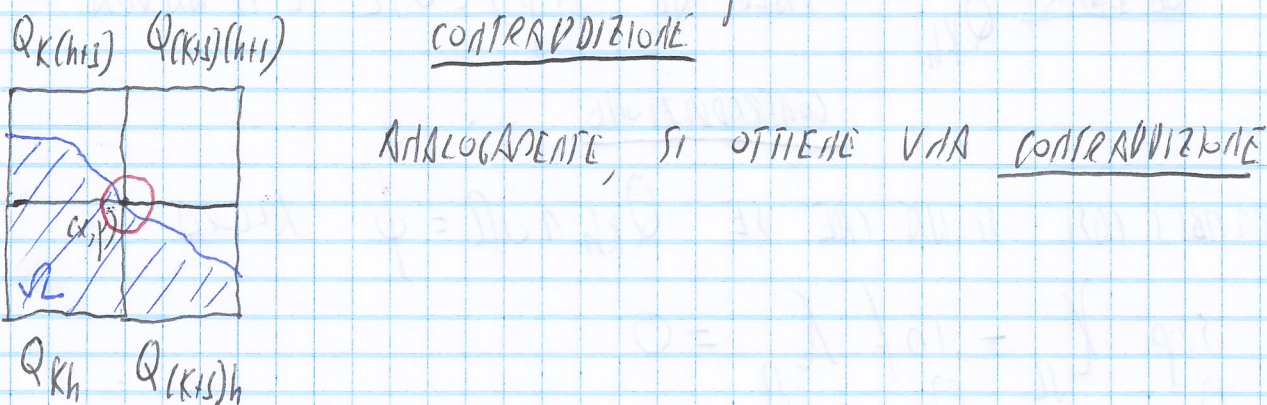 Q_{K(h+1)} Q_{(K+1)(h+1)} CONTRADDIZIONE
ANALOGAMENTE, SI OTTIENE UNA CONTRADDIZIONE
(α,β)
Ω
Q_{Kh} Q_{(K+1)h}